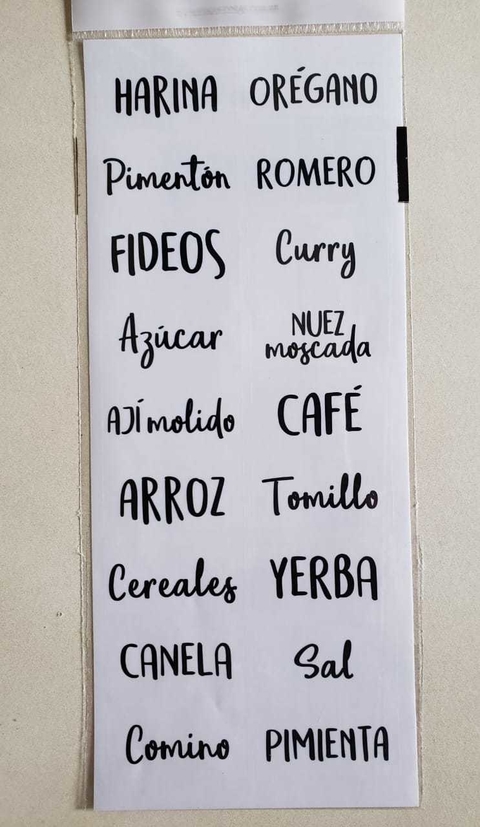 HARINA ORÉGANO
Pimentón ROMERO
FIDEOS Curry
Azúcar NUEZ moscada
AJÍ molido CAFÉ
ARROZ Tomillo
Cereales YERBA
CANELA Sal
Comino PIMIENTA